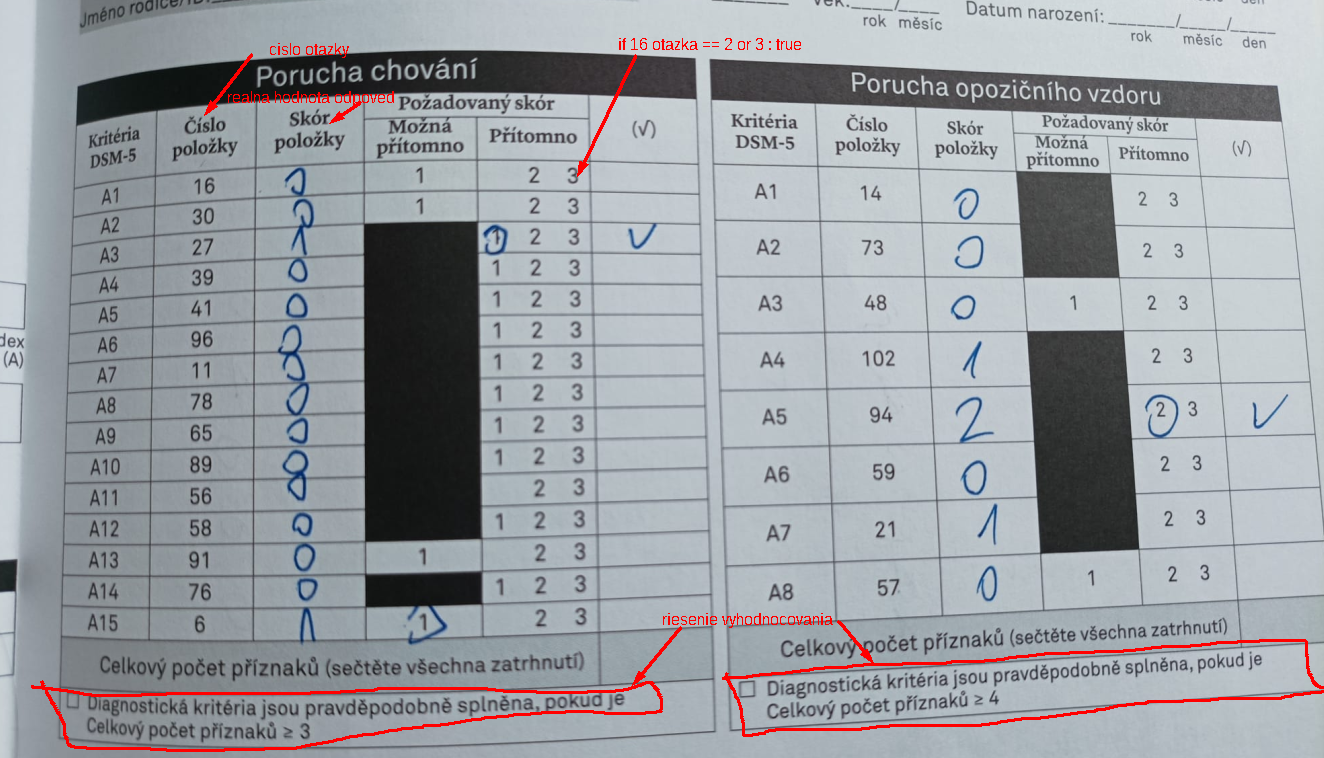 Jméno rodiče/ID:
rok měsíc
Datum narození: ___/___/___
rok měsíc den
cislo otazky
if 16 otazka == 2 or 3 : true
realna hodnota odpoved
Porucha chování
Kritéria DSM-5 Číslo položky Skór položky Požadovaný skór (√)
Možná přítomno Přítomno
A1 16 0 1 2 3
A2 30 0 1 2 3
A3 27 1 1 2 3 ✓
A4 39 0 1 2 3
A5 41 0 1 2 3
A6 96 0 1 2 3
A7 11 0 1 2 3
A8 78 0 1 2 3
A9 65 0 1 2 3
A10 89 0 1 2 3
A11 56 0 2 3
A12 58 0 1 2 3
A13 91 0 1 2 3
A14 76 0 1 2 3
A15 6 1 1 2 3
Celkový počet příznaků (sečtěte všechna zatrhnutí)
☐ Diagnostická kritéria jsou pravděpodobně splněna, pokud je
Celkový počet příznaků ≥ 3
Porucha opozičního vzdoru
Kritéria DSM-5 Číslo položky Skór položky Požadovaný skór (√)
Možná přítomno Přítomno
A1 14 0 2 3
A2 73 0 2 3
A3 48 0 1 2 3
A4 102 1 2 3
A5 94 2 2 3 ✓
A6 59 0 2 3
A7 21 1 2 3
A8 57 0 1 2 3
riesenie vyhodnocovania
Celkový počet příznaků (sečtěte všechna zatrhnutí)
☐ Diagnostická kritéria jsou pravděpodobně splněna, pokud je
Celkový počet příznaků ≥ 4
dex
(A)